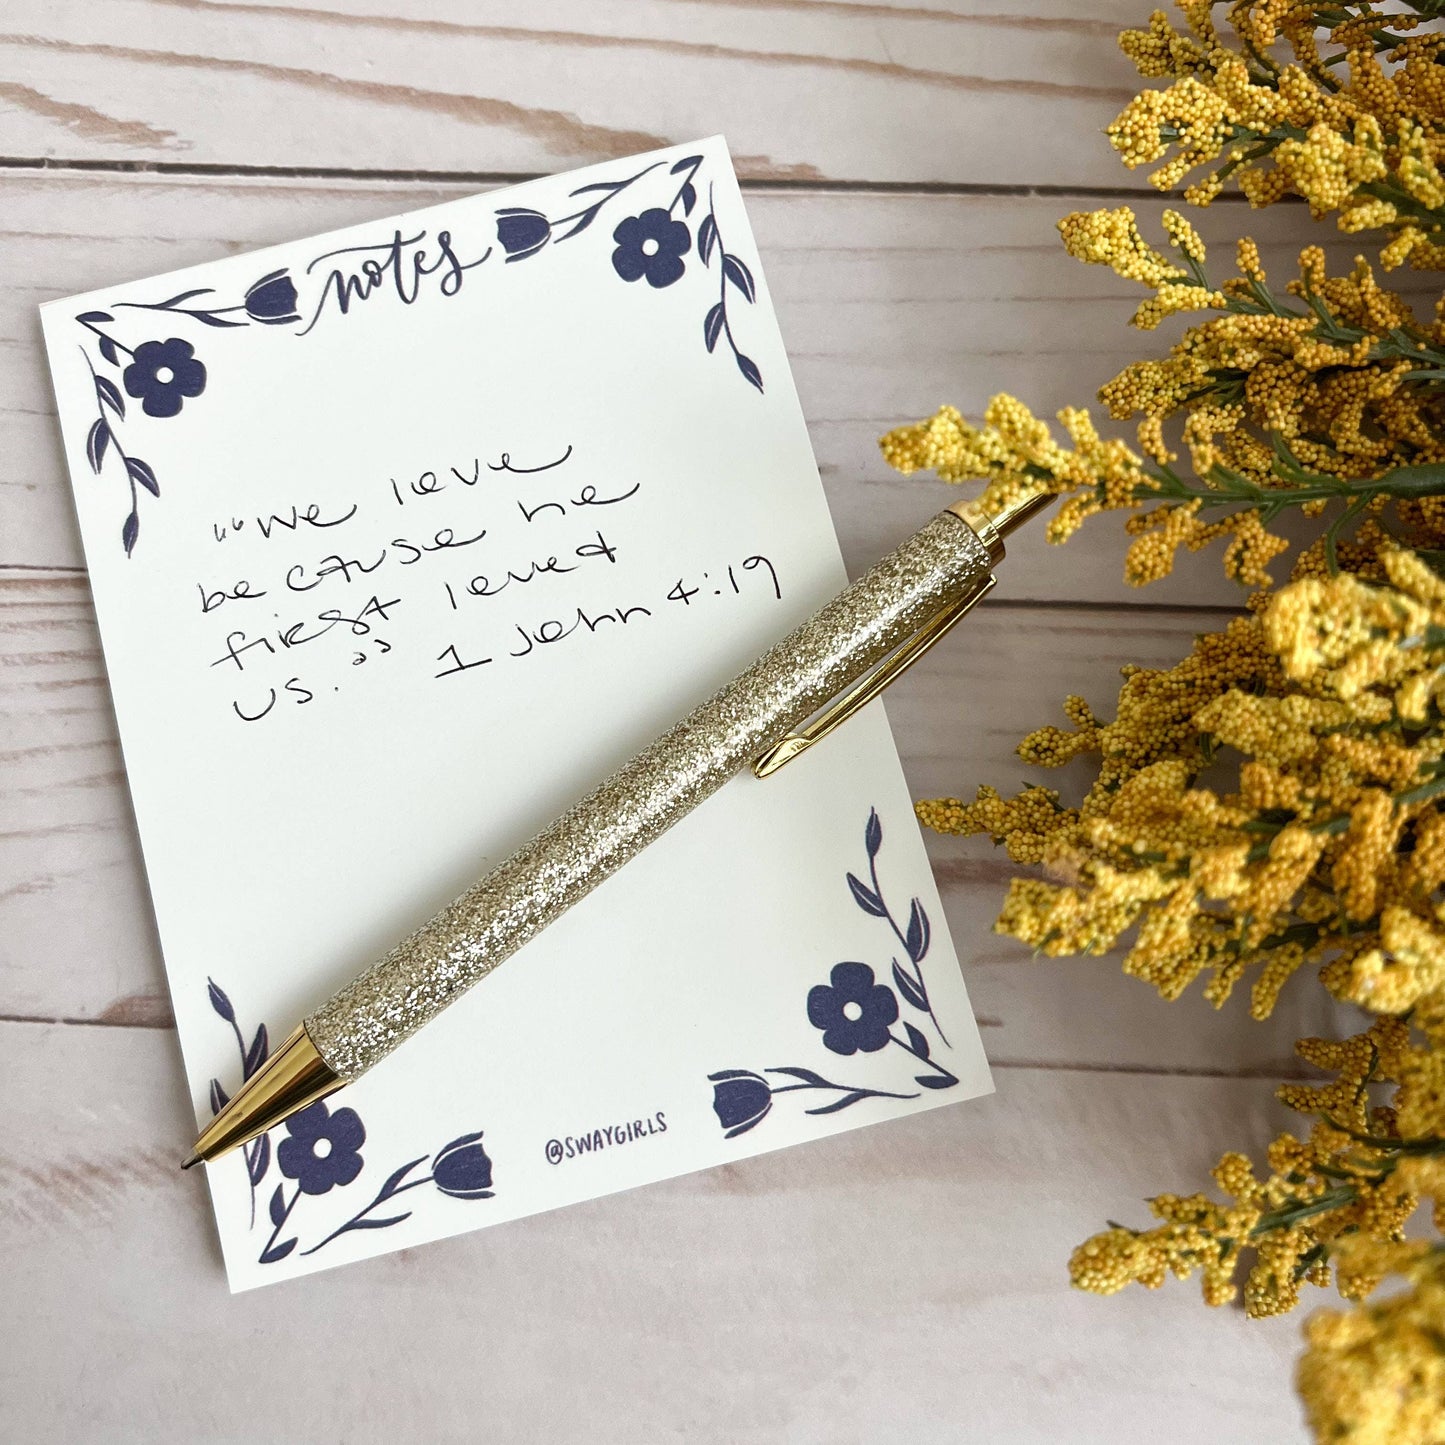 notes
"We love
because he
first loved
us." 1 John 4:19
@SWAYGIRLS